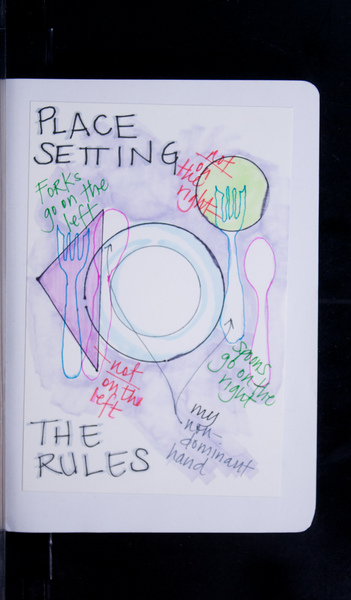 PLACE
SETTING
FORKS
go on the
left
not
on
the
right
spoons
go on the
right
not
on the
left
my
non-
dominant
hand
THE
RULES